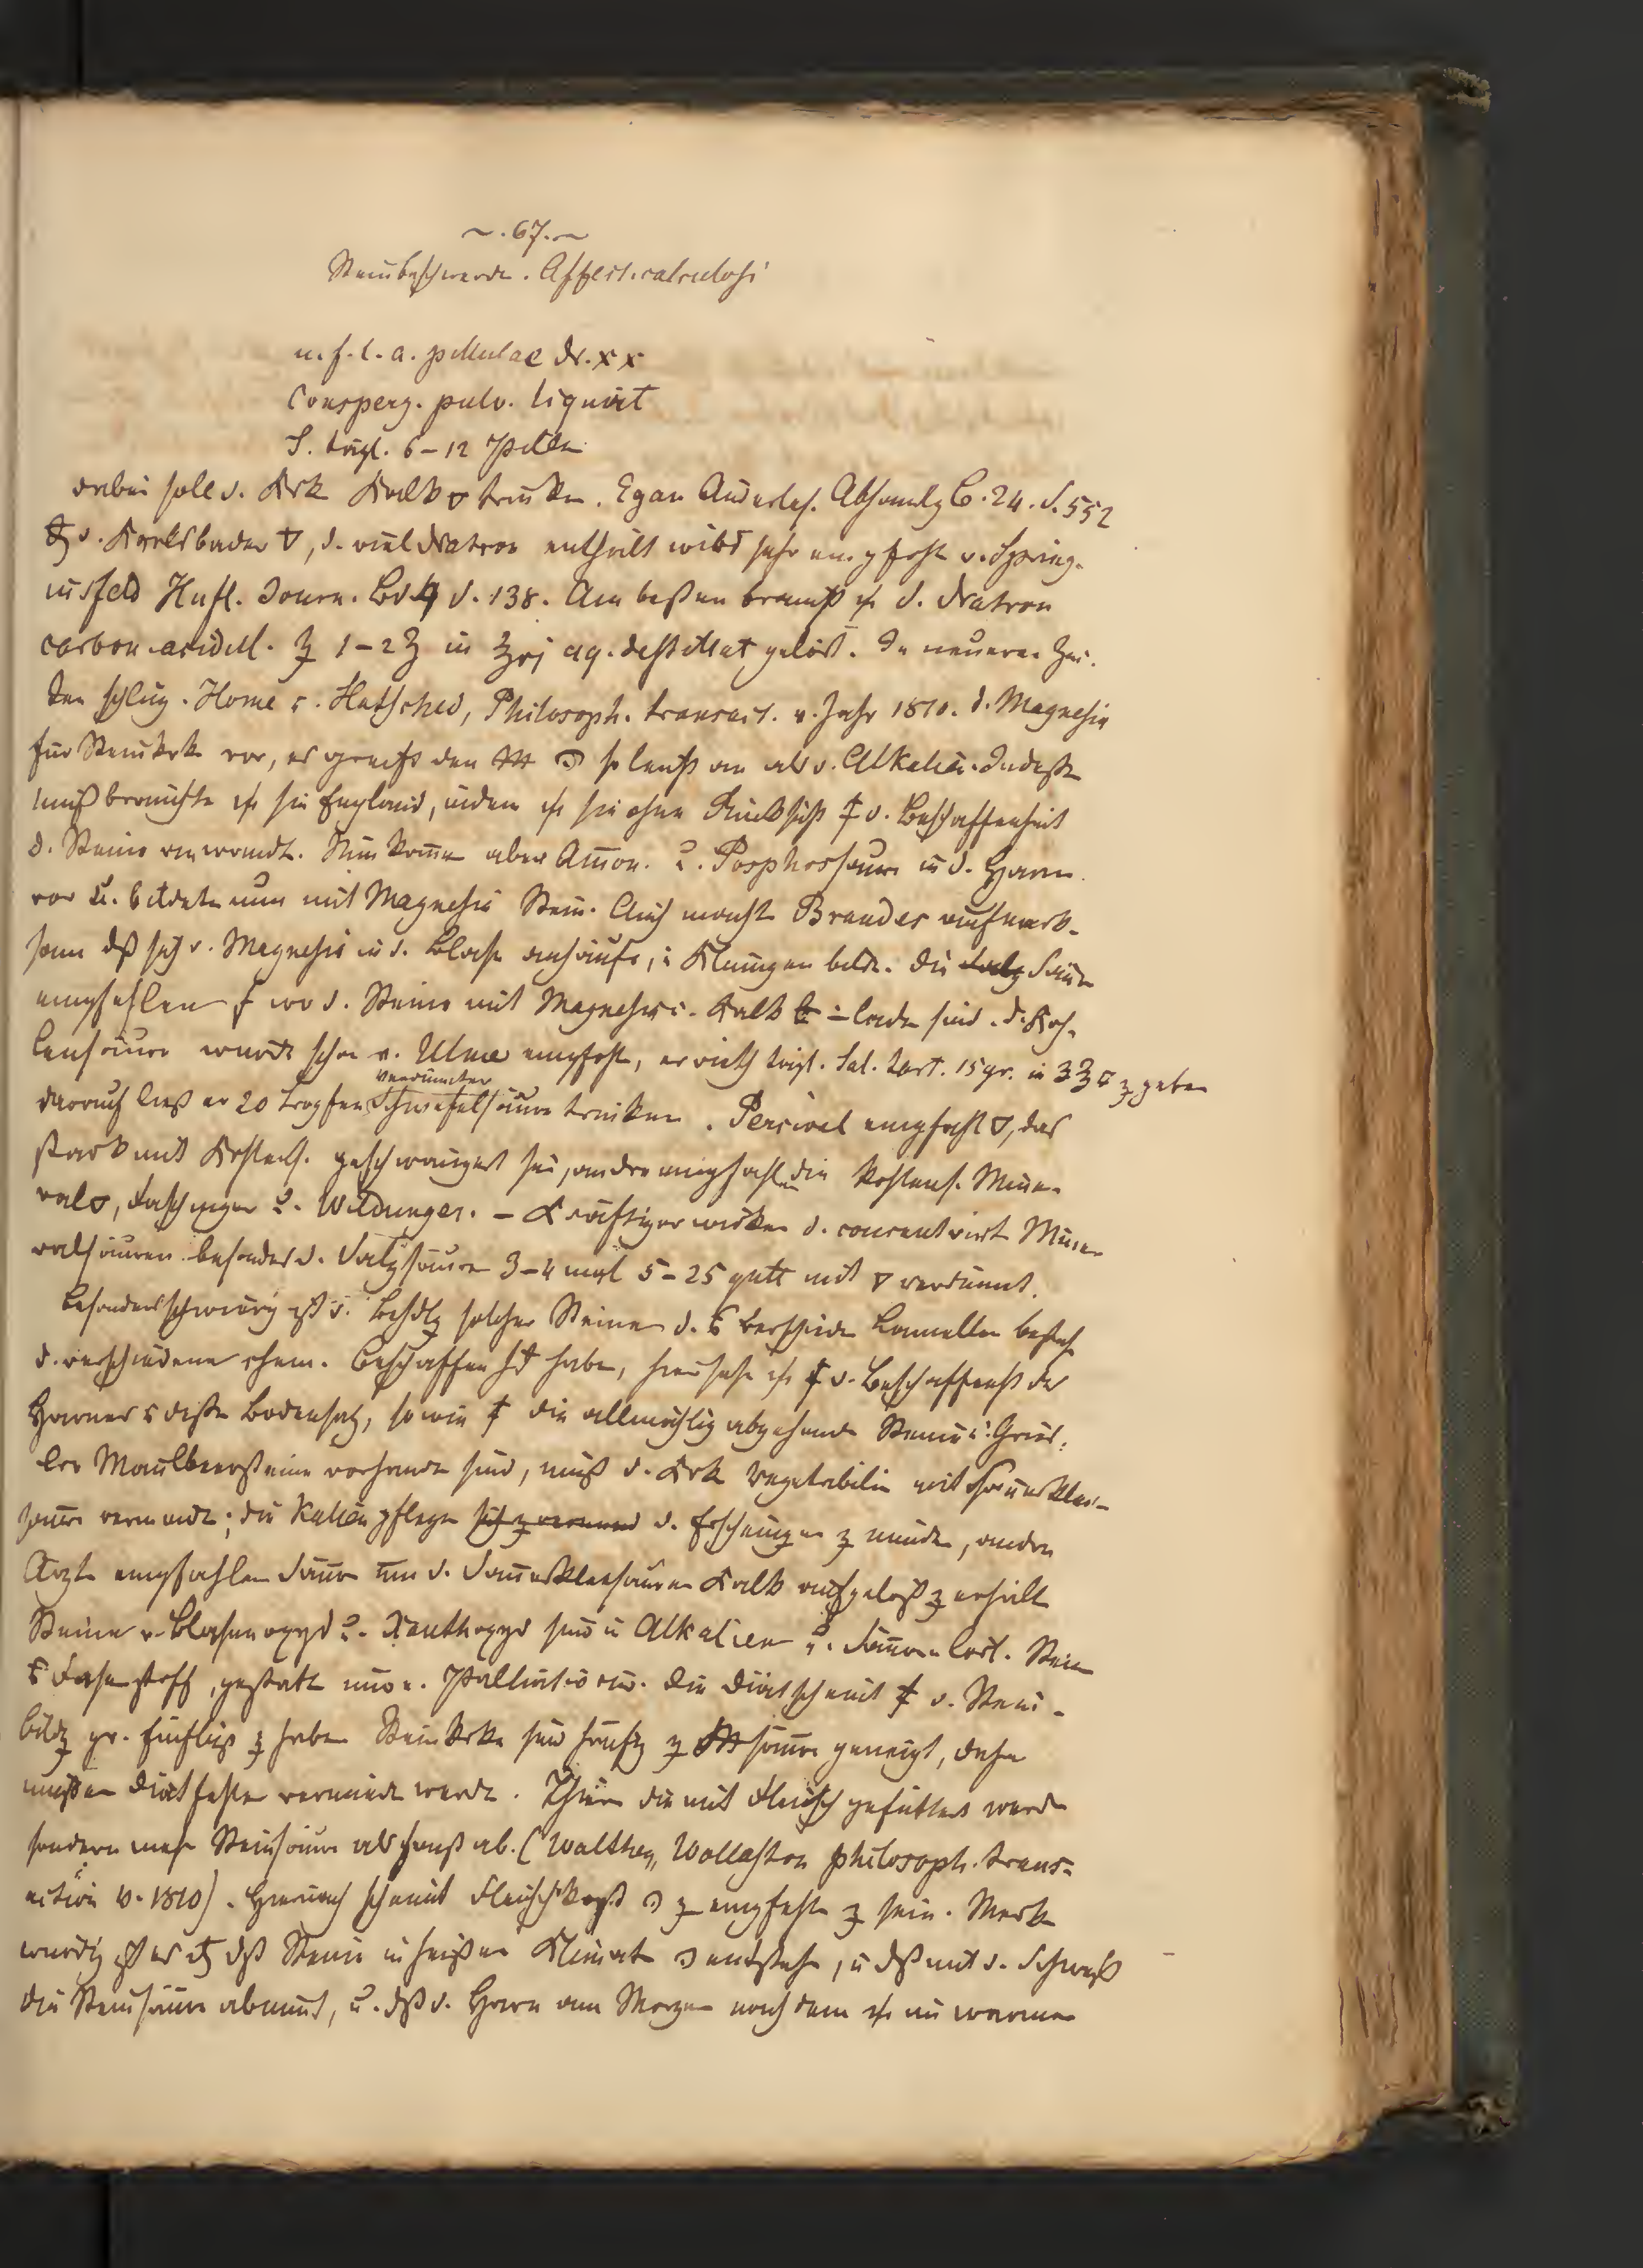 ~. 67. ~
Steinbeschwerde. Affect. calculosi
u. f. l. a. pillulae Nr. xx
Consperg. pulv. liquirit
S. tägl. 6–12 Pillen
dabei soll d. Krk Kalk ▽ trinken. Egan Auserles. Abhandlg B. 24. S. 552
d. Karlsbader ▽, d. viel Natron enthält wird sehr empfohl v. Spring-
insfeld Hufl. Journ. Bd. S. 138. Am besten braucht d. Natron
carbon. acidul. ʒ 1–2 ʒ in aq. destillat gelöst. In neueren Zei-
ten schlug. Home u. Hatsched, Philosoph. transact. v. Jahr 1810. d. Magnesia
für Steinkrk vor, es greife den so leicht an als d. Alkalien. Indeße
mißbrauchte sie England, indem sie ohne Rücksicht d. Beschaffenheit
d. Steine anwandt. Nun komm aber Amon. u. Posphorsäure in d. Harn
vor u. bildete nun mit Magnesia Stein. Auch macht Brandes aufmerk-
sam dß sich d. Magnesia in d. Blase anhäufe, Klumpen bilde. Die Säure
empfehlen wo d. Steine mit Magnesia Kalk sind. d. Koh-
lensäure wurde schon v. Ulme empfohl, er rieth tägl. Sal. tart. 15 gr. in geben
darauf ließ er 20 Tropfen verdünnter Schwefelsäure trinken. Percival empfahl ▽, das
stark mit Kohlens. geschwängert sei, andre empfahlen die kohlens. Mine-
ral ▽, Fachinger u. Wildunger. – Kräftiger wirken d. concentrirt Mine-
ralsäuren besonders d. Salzsäure 3–4 mal 5–25 gutt mit ▽ verdünnt.
Besonders schwierig ist d. Behdlg solcher Steine d. verschieden Lamellen besteh
d. verschiedene chem. Beschaffenht haben, hier sehe d. Beschaffenht des
Harnes u diße Bodensatz, so wie die allmählig abgehende Steine u. Gries.
Maulbeersteine vorhand sind, muß d. Krk Vegetabilien mit Sauerklee-
säure vermeide; die Kalien pflegen d. Erscheingen z mindern, andre
Ärzte empfahlen Säure um d. Sauerkleesauren Kalk aufgelöst z erhalt
Steine v. Blasenoxyd u. Xanthoxyd sind in Alkalien u. Säuren lösl. Stein
Faserstoff, gestatte nur e. Palliativ cur. Die Diät scheint d. Stein-
bildg gr. Einfluß z haben Steinkrke sind häufg z säure geneigt, daher
müßen Diätfehler vermiede werde. Thiere die mit Fleisch gefüttert werd
sondern mehr Steinsäure ab. (Walther, Wollaston philosoph. trans-
action v. 1810). Hiernach scheint Fleischkost z empfehl z sein. Merk
würdig ist es dß Steine in heißen Klimat entsteh, u dß mit d. Schweiß
die Steinsäure abnimt, u. dß d. Harn am Morgen nachdem im warmen